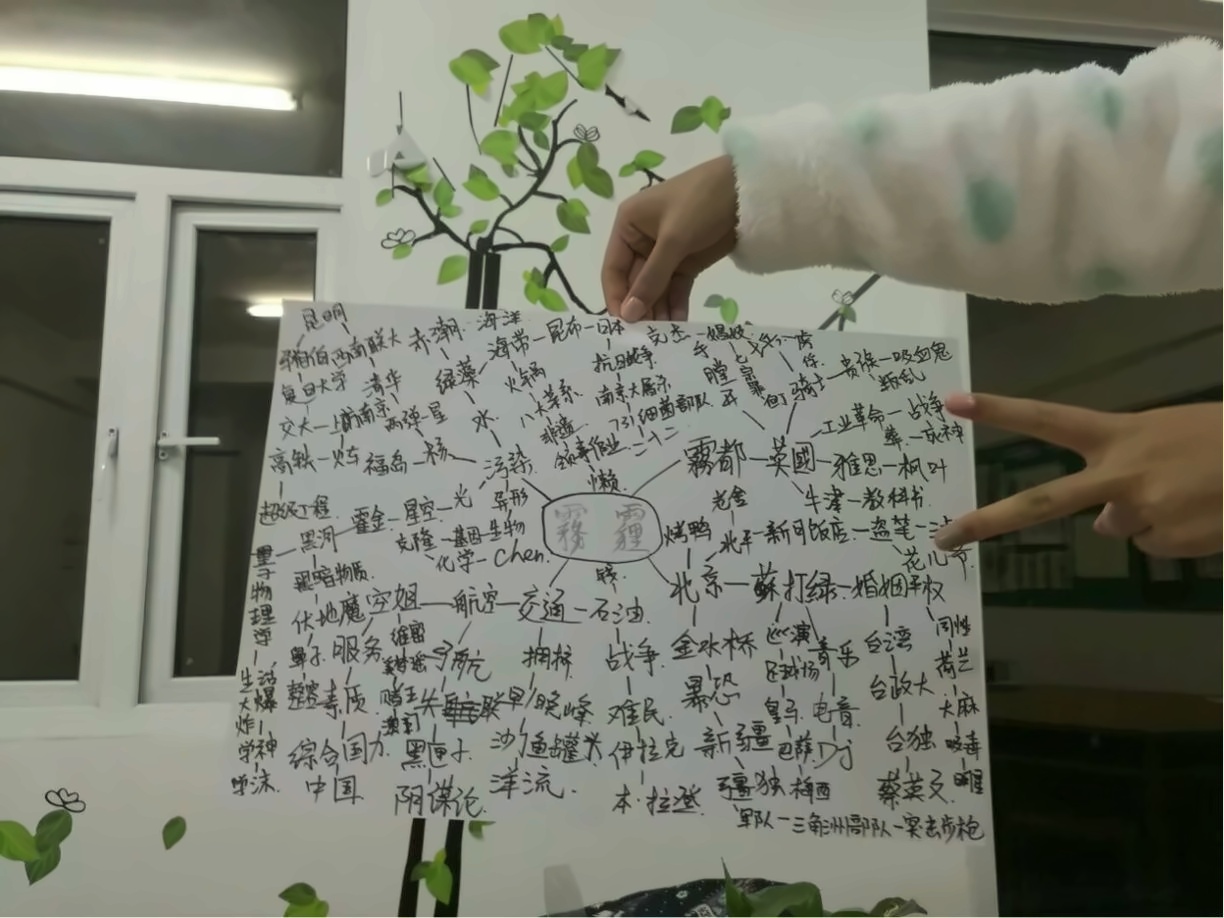 昆明
西南联大
赤潮
海洋
海带—昆布—日本
文杰
复旦大学
清华
绿藻
火锅
抗日战争
骑士—贵族—吸血鬼
叛乱
交大—上海
南京
两弹一星
水
八大菜系
南京大屠杀
731细菌部队
工业革命—战争
非遗
高铁—火车
福岛—核
污染
领事作业
二十二
霧都—英國—雅思—枫叶
懒
牛津—教科书
超级工程
黑洞—霍金—星空—光
异形
霧霾
老舍
克隆—基因—生物
烤鸭
北平—新月饭店—盗笔
量子物理学
暗物质
化学—Chen
花儿爷
钱
伏地魔
空姐—航空—交通—石油
北京—蘇打绿—婚姻平权
鼻子
服务
维密
拥挤
战争
金水桥
巡演
音乐
台湾
同性
荷兰
整容
素质
赌王
失联
早/晚峰
难民
暴恐
皇马
电音
台政大
大麻
生活大爆炸
澳门
综合国力
黑匣子
沙丁鱼罐头
伊拉克
新疆
巴萨
Dj
台独
吸毒
学神
学沫
中国
阴谋论
洋流
本·拉登
疆独
梅西
蔡英文
军队—三角洲部队—突击步枪